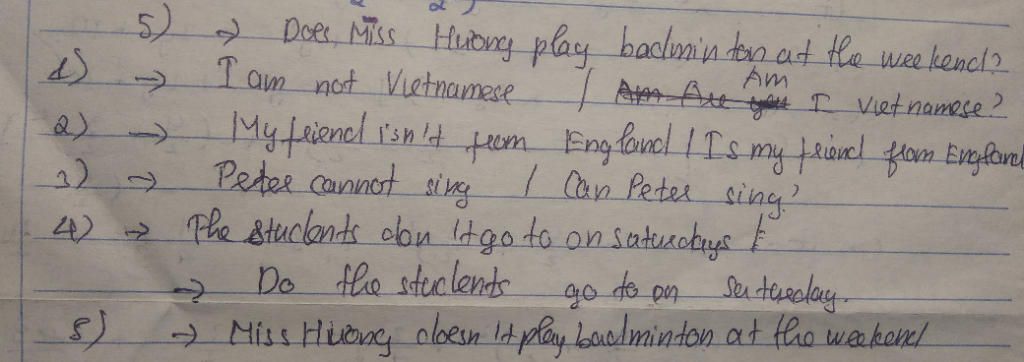 5) → Does Miss Huong play badminton at the weekend?
1) → I am not Vietnamese / Am I Vietnamese?
2) → My friend isn't from England / Is my friend from England
3) → Peter cannot sing / Can Peter sing?
4) → The students don't go to on saturdays /
→ Do the students go to on saturday.
5) → Miss Huong doesn't play badminton at the weekend